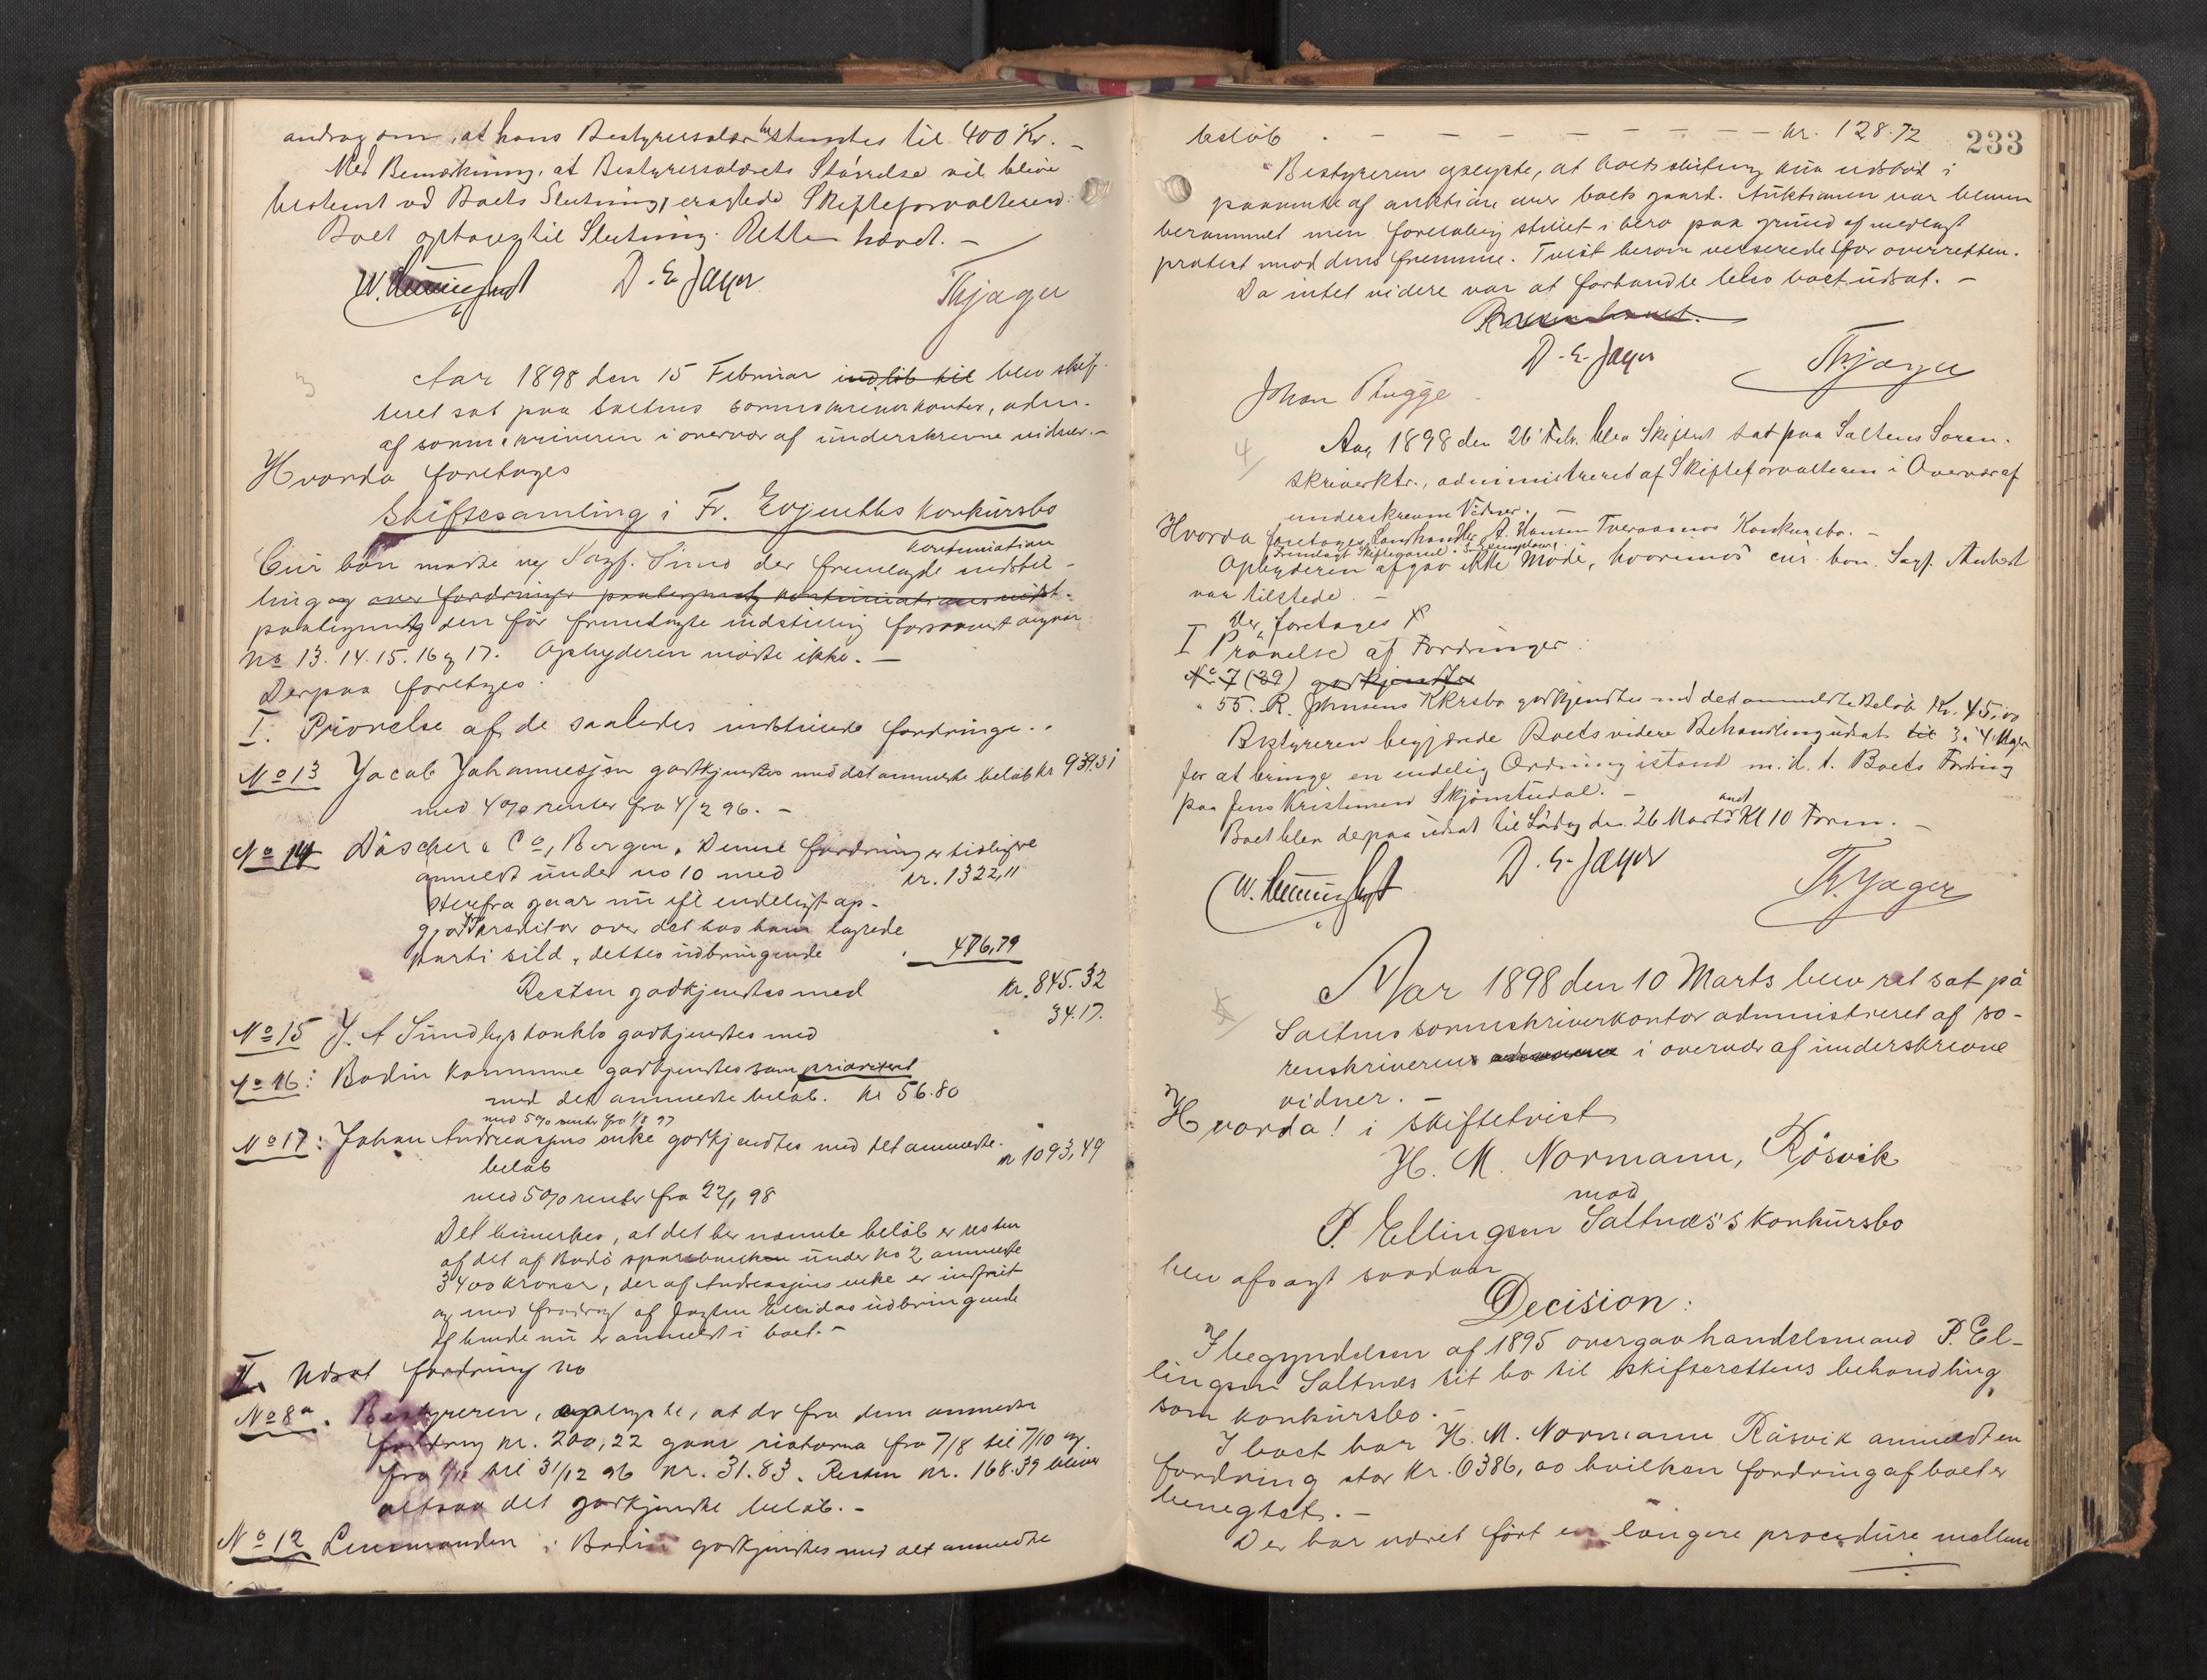 androg om, at hans Bestyrersalær bestemtes til 400 Kr. –
Med Bemærkning, at Bestyrersalærets Størrelse vil blive
bestemt ved Boets Slutning, eragtede Skifteforvalteren:
Boet optages til Slutning. Retten hævet. –
D. E. Jæger
Th Jæger
3
Aar 1898 den 15 Februar indløb til blev skif-
teret sat paa Saltens sorenskriverkontor, adm.
af sorenskriveren i overvær af underskrevne vidner. –
Hvorda foretoges
Skiftesamling i Fr. Evjenths konkursbo
Cur bon mødte ved Sagf. Sund der fremlagde
kontinuation
indstil-
ling og over fordringer
paategning den før fremlagte indstilling forsaavidt angaar
No 13. 14. 15. 16 og 17. Opbyderen mødte ikke. –
Derpaa foretoges
I. Prøvelse af de saaledes indstillede fordringer.
No 13 Jacob Johannesjøn godkjendtes med det anmeldte beløb kr 939.31
med 4 % renter fra 4/2 96. –
No 14 Däscher & Co, Bergen. Denne fordring er tidligere
anmeldt under no 10 med kr. 1322,11
Herfra gaar nu ifl endeligt op-
gjør over det hos ham lagrede
parti sild, dettes udbringende 476,79
Resten godkjendtes med kr. 845.32
No 15 J. A Sundbys konkbo godkjendtes med " 34.17.
No 16: Bodin kommune godkjendtes som prioriteret
med det anmeldte beløb. kr 56.80
med 5 % renter fra 1/8 97
No 17: Johan Andreasjens enke godkjendtes med det anmeldte
beløb kr 1093,49
med 5 % renter fra 22/1 98
Det bemerkes, at det her nævnte beløb er resten
af det af Bodø sparebanken under no 2 anmeldte
3400 kroner, der af Andreasjens enke er indfriet
og med fradrag af Jagten Ellidas udbringende
af hende nu er anmeldt i boet. –
II. Udsat fordring no
No 8a. Bestyreren, oplyste, at der fra den anmeldte
fordring kr. 200,22 gaar fra 7/8 til 7/10 og
fra til 31/12 96 kr. 31.83. Resten kr. 168.39 bliver
altsaa det godkjendte beløb. –
No 12 Lensmanden i Bodin godkjendtes med det anmeldte
233
beløb – – – – – – – – kr. 128.72
Bestyreren oplyste, at boets slutning kun udstod i
paavente af auktion over boets gaard. Auktionen var bleven
berammet men foreløbig stillet i bero paa grund af nedlagt
protest mod dens fremme. Tvist herom verserede for overretten.
Da intet videre var at forhandle blev boet udsat. –
D. E. Jæger
Th. Jæger
Johan Rugge
4/
Aar 1898 den 26 Feb. blev Skifteret sat paa Saltens Soren-
skriverktr., administreret af Skifteforvalteren i Overvær af
underskrevne Vidner. –
Hvorda foretoges Landhandler A. Hansen Tveraamos Konkursbo. –
Fremlagt Skiftegjæld. 3 Exemplarer
Opbyderen afgav ikke Møde, hvorimod cur. bon. Sagf. Anhert
var tilstede. –
Der foretoges
I Prøvelse af Fordringer:
No 7 (39) godkjendtes
" 55. R. Johnsens KKrsbo godkjendtes med det anmeldte Beløb Kr. 45,00
Bestyreren begjærede Boets videre Behandling udsat til 3 à 4 Uger
for at bringe en endelig Ordning istand m. h. t. Boets Fordring
paa Jens Kristensen Skjønstudal. –
Boet blev derpaa udsat til Lørdag den 26 Marts Kl 10 Form. –
D. E. Jæger
Th. Jæger
5/
Aar 1898 den 10 Marts blev ret sat på
Saltens sorenskriverkontor administreret af so-
renskriveren i overvær af underskrevne
vidner.
Hvorda! i skiftetvist
H. M. Normann, Røsvik
mod
P. Ellingsen Saltnæs's konkursbo
blev afsagt saadan
Decision:
I begyndelsen af 1895 overgav handelsmand P. El-
lingsen Saltnæs sit bo til skifterettens behandling
som konkursbo. –
I boet har H. M. Normann Røsvik anmeldt en
fordring stor kr. 6386,00 hvilken fordring af boet er
benegtet. –
Der har været ført en længere procedure mellem